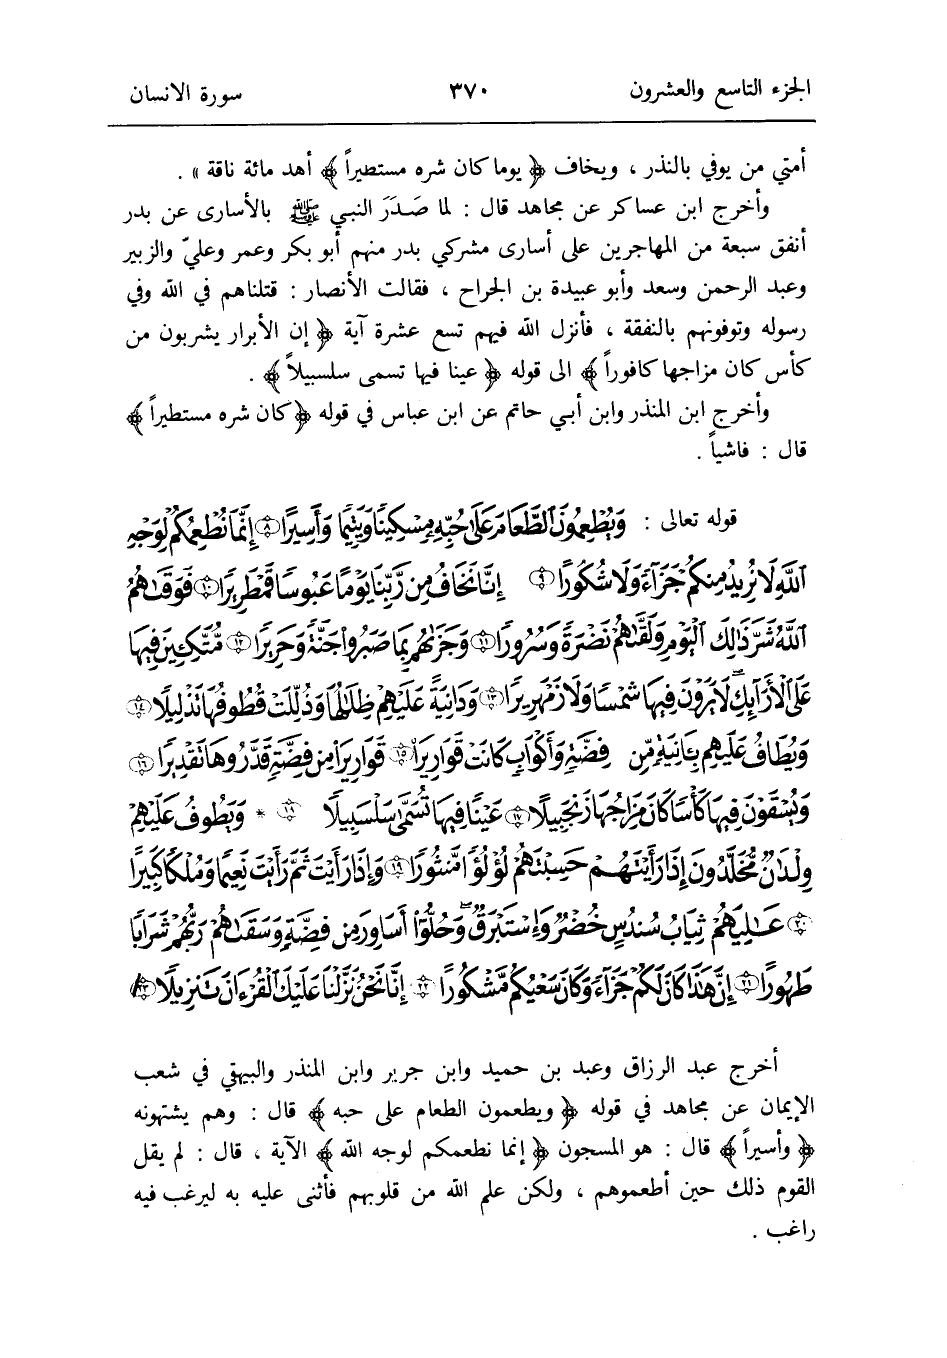 الجزء التاسع والعشرون ٣٧٠ سورة الانسان
أمتي من يوفي بالنذر ، ويخاف ﴿ يوما كان شره مستطيراً ﴾ أهد مائة ناقة » .
وأخرج ابن عساكر عن مجاهد قال : لما صَدَرَ النبي ﷺ بالأسارى عن بدر
أنفق سبعة من المهاجرين على أسارى مشركي بدر منهم أبو بكر وعمر وعليّ والزبير
وعبد الرحمن وسعد وأبو عبيدة بن الجراح ، فقالت الأنصار : قتلناهم في الله وفي
رسوله وتوفونهم بالنفقة ، فأنزل الله فيهم تسع عشرة آية ﴿ إن الأبرار يشربون من
كأس كان مزاجها كافوراً ﴾ الى قوله ﴿ عينا فيها تسمى سلسبيلاً ﴾ .
وأخرج ابن المنذر وابن أبي حاتم عن ابن عباس في قوله ﴿ كان شره مستطيراً ﴾
قال : فاشياً .
قوله تعالى : وَيُطْعِمُونَ ٱلطَّعَامَ عَلَىٰ حُبِّهِۦ مِسْكِينًا وَيَتِيمًا وَأَسِيرًا ۝٨ إِنَّمَا نُطْعِمُكُمْ لِوَجْهِ
ٱللَّهِ لَا نُرِيدُ مِنكُمْ جَزَآءً وَلَا شُكُورًا ۝٩ إِنَّا نَخَافُ مِن رَّبِّنَا يَوْمًا عَبُوسًا قَمْطَرِيرًا ۝١٠ فَوَقَىٰهُمُ
ٱللَّهُ شَرَّ ذَٰلِكَ ٱلْيَوْمِ وَلَقَّىٰهُمْ نَضْرَةً وَسُرُورًا ۝١١ وَجَزَىٰهُم بِمَا صَبَرُوا۟ جَنَّةً وَحَرِيرًا ۝١٢ مُّتَّكِـِٔينَ فِيهَا
عَلَى ٱلْأَرَآئِكِ ۖ لَا يَرَوْنَ فِيهَا شَمْسًا وَلَا زَمْهَرِيرًا ۝١٣ وَدَانِيَةً عَلَيْهِمْ ظِلَٰلُهَا وَذُلِّلَتْ قُطُوفُهَا تَذْلِيلًا ۝١٤
وَيُطَافُ عَلَيْهِم بِـَٔانِيَةٍ مِّن فِضَّةٍ وَأَكْوَابٍ كَانَتْ قَوَارِيرَا۠ ۝١٥ قَوَارِيرَا۟ مِن فِضَّةٍ قَدَّرُوهَا تَقْدِيرًا ۝١٦
وَيُسْقَوْنَ فِيهَا كَأْسًا كَانَ مِزَاجُهَا زَنجَبِيلًا ۝١٧ عَيْنًا فِيهَا تُسَمَّىٰ سَلْسَبِيلًا ۝١٨ * وَيَطُوفُ عَلَيْهِمْ
وِلْدَٰنٌ مُّخَلَّدُونَ إِذَا رَأَيْتَهُمْ حَسِبْتَهُمْ لُؤْلُؤًا مَّنثُورًا ۝١٩ وَإِذَا رَأَيْتَ ثَمَّ رَأَيْتَ نَعِيمًا وَمُلْكًا كَبِيرًا
۝٢٠ عَٰلِيَهُمْ ثِيَابُ سُندُسٍ خُضْرٌ وَإِسْتَبْرَقٌ ۖ وَحُلُّوٓا۟ أَسَاوِرَ مِن فِضَّةٍ وَسَقَىٰهُمْ رَبُّهُمْ شَرَابًا
طَهُورًا ۝٢١ إِنَّ هَٰذَا كَانَ لَكُمْ جَزَآءً وَكَانَ سَعْيُكُم مَّشْكُورًا ۝٢٢ إِنَّا نَحْنُ نَزَّلْنَا عَلَيْكَ ٱلْقُرْءَانَ تَنزِيلًا ۝٢٣
أخرج عبد الرزاق وعبد بن حميد وابن جرير وابن المنذر والبيهقي في شعب
الإيمان عن مجاهد في قوله ﴿ ويطعمون الطعام على حبه ﴾ قال : وهم يشتهونه
﴿ وأسيراً ﴾ قال : هو المسجون ﴿ إنما نطعمكم لوجه الله ﴾ الآية ، قال : لم يقل
القوم ذلك حين أطعموهم ، ولكن علم الله من قلوبهم فأثنى عليه به ليرغب فيه
راغب .